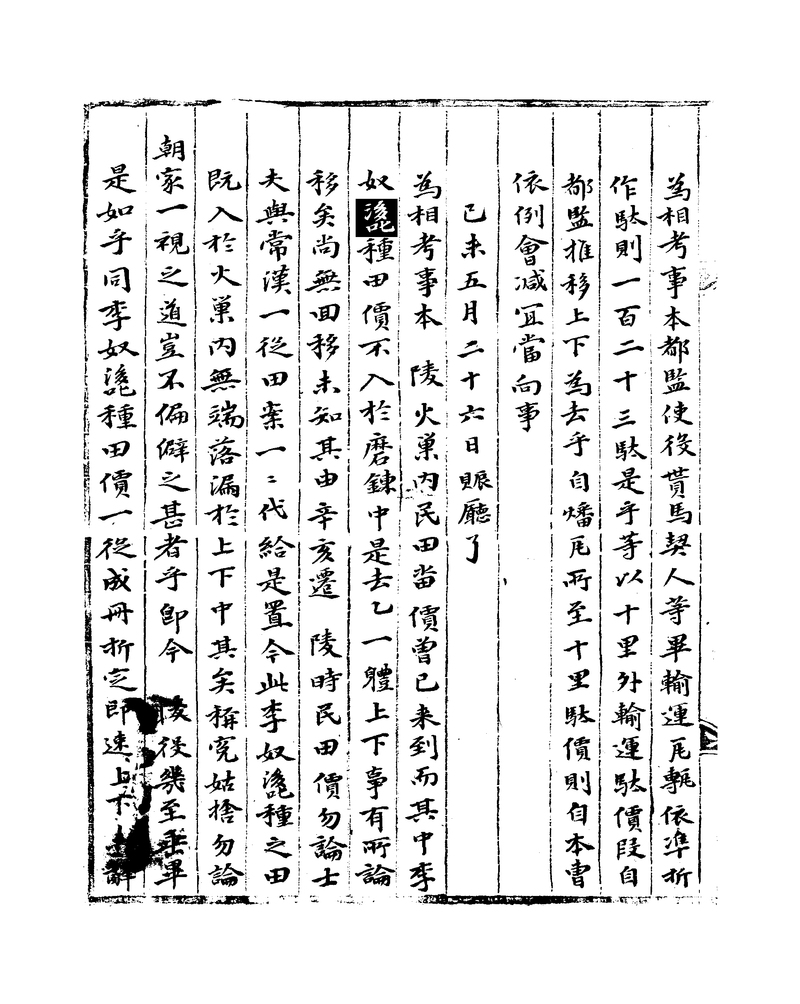 為相考事本都監使役貰馬契人等畢輸運瓦甎依準折
作馱則一百二十三馱是乎等以十里外輸運馱價段自
都監推移上下為去乎自燔瓦所至十里馱價則自本曹
依例會減冝當向事
己未五月二十六日賑廳了
為相考事本 陵火巢內民田畓價曾已来到而其中李
奴㖙種田價不入於磨鍊中是去乙一軆上下事有所論
移矣尚無回移未知其由辛亥遷 陵時民田價勿論士
夫與常漢一從田案一々代給是置今此李奴㖙種之田
既入於火巢內無端落漏於上下中其矣稱寃姑捨勿論
朝家一視之道豈不偏僻之甚者乎卽今 陵役幾至垂畢
是如乎同李奴㖙種田價一從成冊折定即速上下